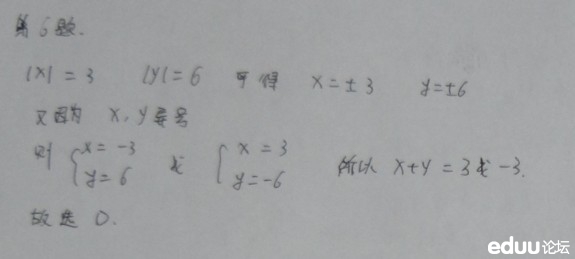 第6题.
|x|=3 |y|=6 可得 x=±3 y=±6
又因为 x,y异号
则 { x=-3 y=6 或 { x=3 y=-6 所以 x+y=3或-3.
故选 D.
eduu论坛